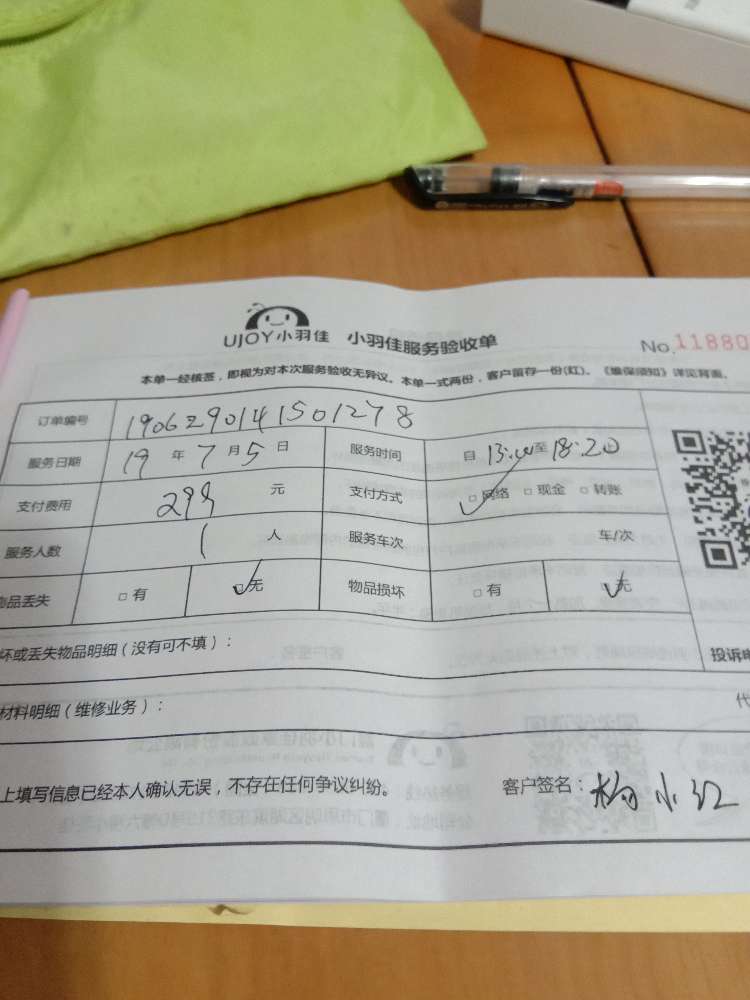 UJOY小羽佳 小羽佳服务验收单 No.11880
本单一经核签，即视为对本次服务验收无异议。本单一式两份，客户留存一份(红)。《维保须知》详见背面。
订单编号 1906290141501278
服务日期 19 年 7 月 5 日 服务时间 自 13:00 至 18:20
支付费用 299 元 支付方式 □网络 □现金 □转账
服务人数 1 人 服务车次 车/次
品丢失 □有 □无 物品损坏 □有 □无
坏或丢失物品明细（没有可不填）： 投诉
材料明细（维修业务）： 代
上填写信息已经本人确认无误，不存在任何争议纠纷。 客户签名：杨小红